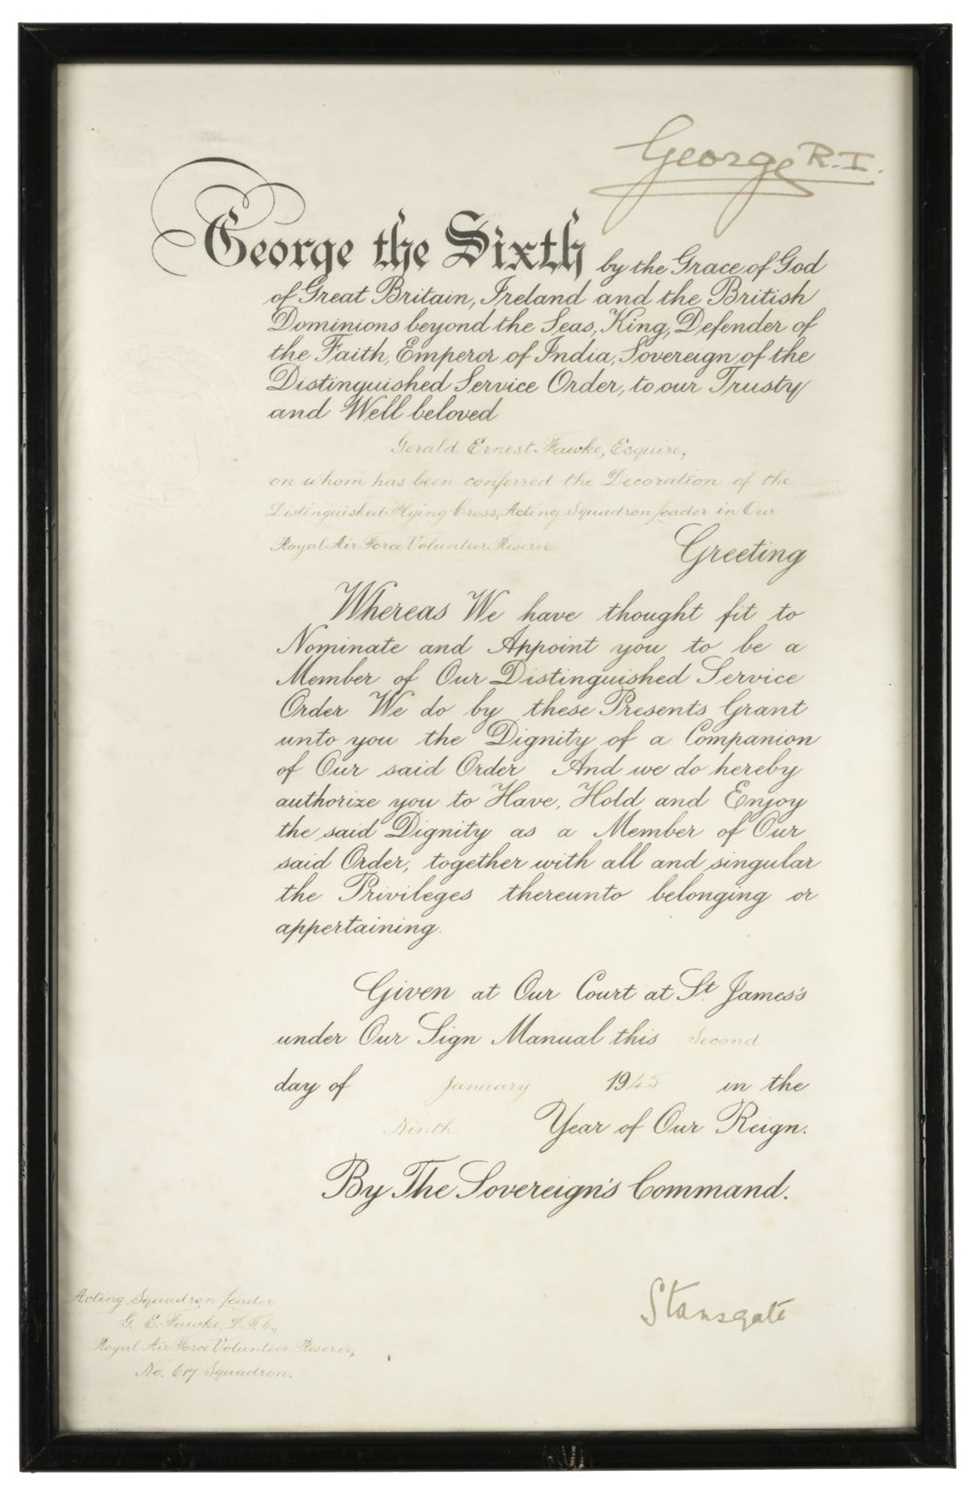 George R.I.
George the Sixth by the Grace of God
of Great Britain, Ireland and the British
Dominions beyond the Seas, King, Defender of
the Faith, Emperor of India, Sovereign of the
Distinguished Service Order, to our Trusty
and Well beloved
Gerald Ernest Fawke, Esquire,
on whom has been conferred the Decoration of the
Distinguished Flying Cross, Acting Squadron Leader in Our
Royal Air Force Volunteer Reserve
Greeting
Whereas We have thought fit to
Nominate and Appoint you to be a
Member of Our Distinguished Service
Order We do by these Presents Grant
unto you the Dignity of a Companion
of Our said Order And we do hereby
authorize you to Have, Hold and Enjoy
the said Dignity as a Member of Our
said Order, together with all and singular
the Privileges thereunto belonging or
appertaining.
Given at Our Court at St James's
under Our Sign Manual this Second
day of January 1945 in the
Ninth Year of Our Reign.
By The Sovereign's Command.
Stansgate
Acting Squadron Leader
G. E. Fawke, D.F.C.,
Royal Air Force Volunteer Reserve,
No. 617 Squadron.